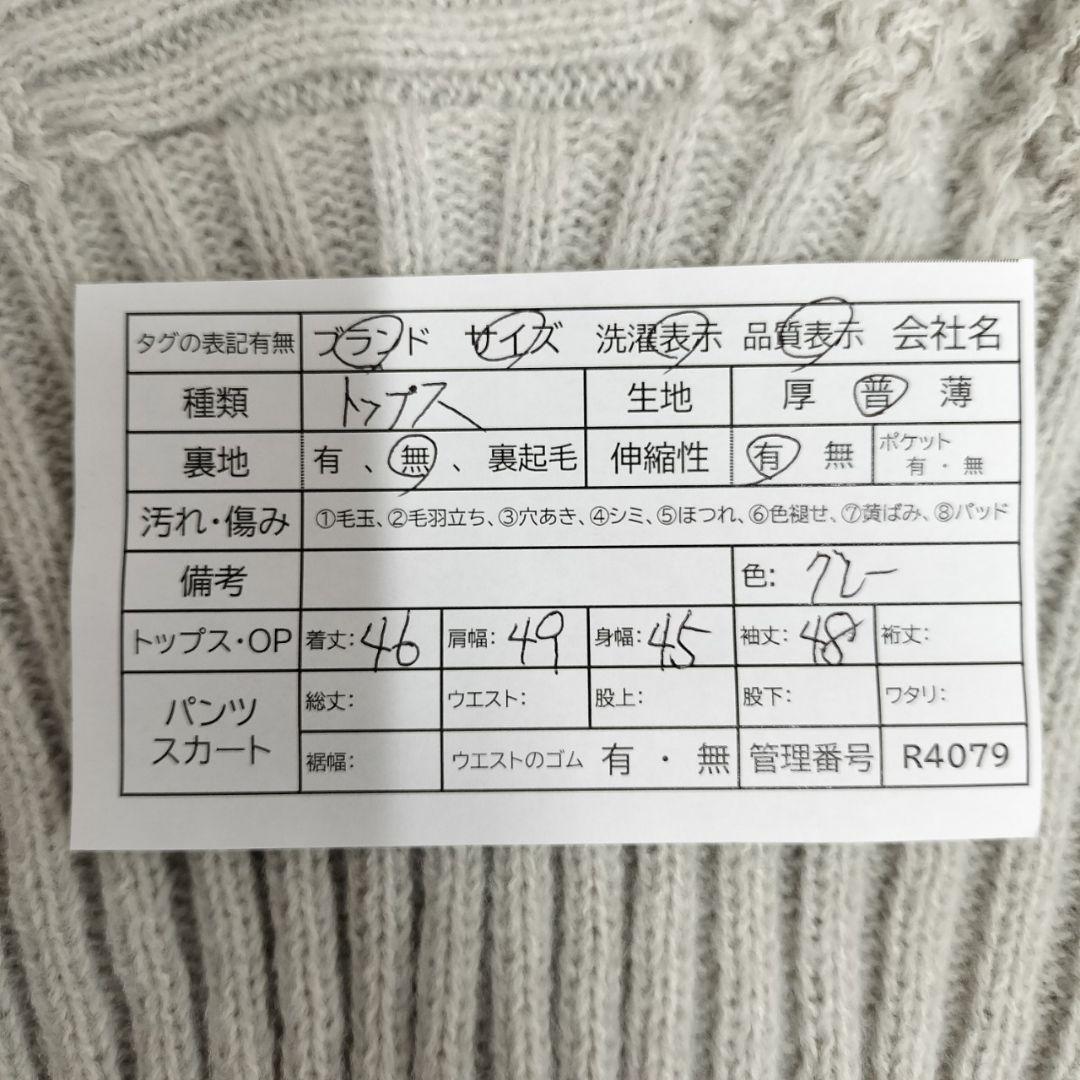 タグの表記有無 ブランド サイズ 洗濯表示 品質表示 会社名
種類 トップス 生地 厚 普 薄
裏地 有 、 無 、 裏起毛 伸縮性 有 無 ポケット 有 ・ 無
汚れ・傷み ①毛玉、②毛羽立ち、③穴あき、④シミ、⑤ほつれ、⑥色褪せ、⑦黄ばみ、⑧パッド
備考 色: グレー
トップス・OP 着丈: 46 肩幅: 49 身幅: 45 袖丈: 48 裄丈:
パンツ スカート 総丈: ウエスト: 股上: 股下: ワタリ:
裾幅: ウエストのゴム 有 ・ 無 管理番号 R4079